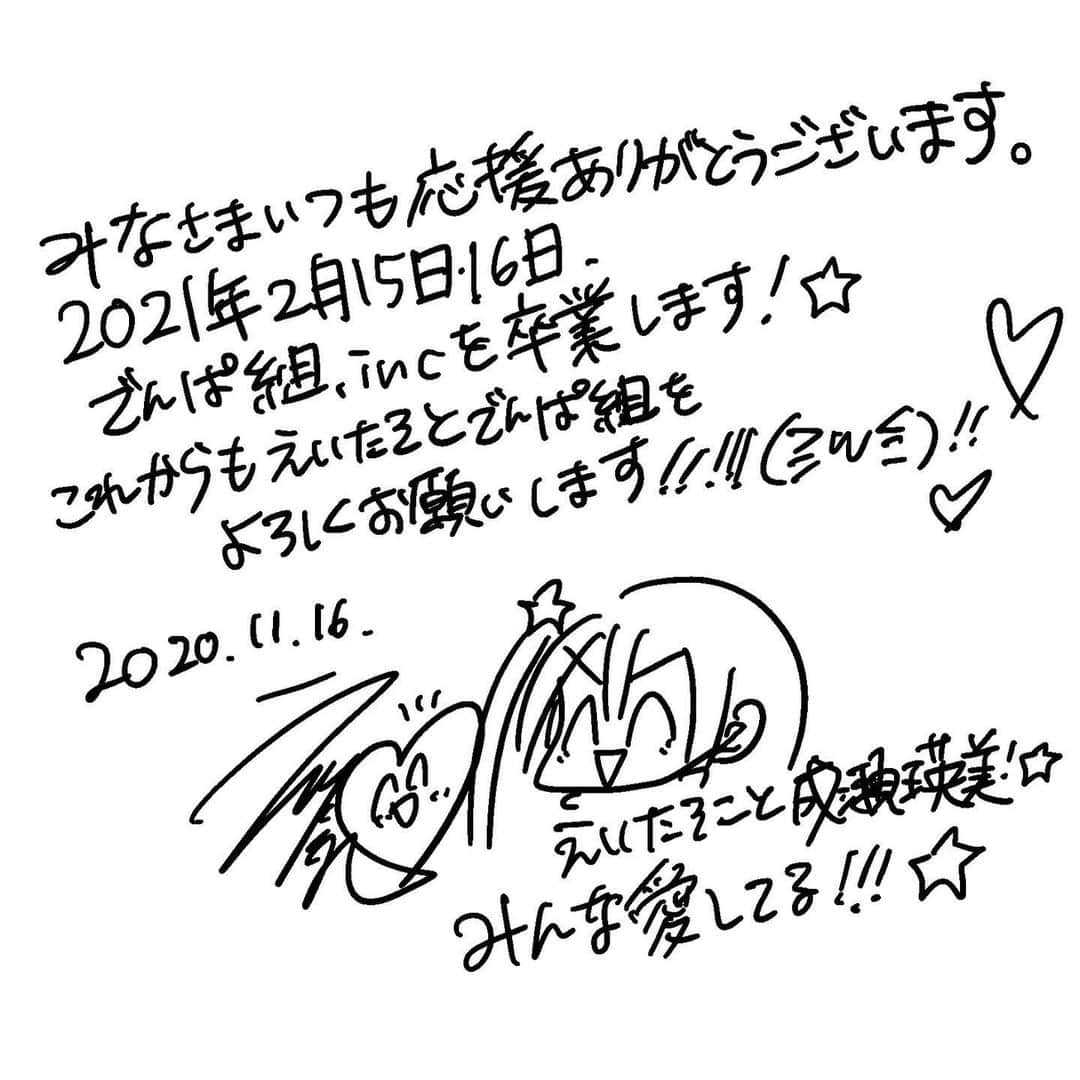 みなさまいつも応援ありがとうございます。
2021年2月15日・16日.
でんぱ組.incを卒業します!☆
これからもえいたそとでんぱ組を
よろしくお願いします!!!!!(ミw彡)!!
2020.11.16.
えいたそこと成瀬瑛美!☆
みんな愛してる!!!☆